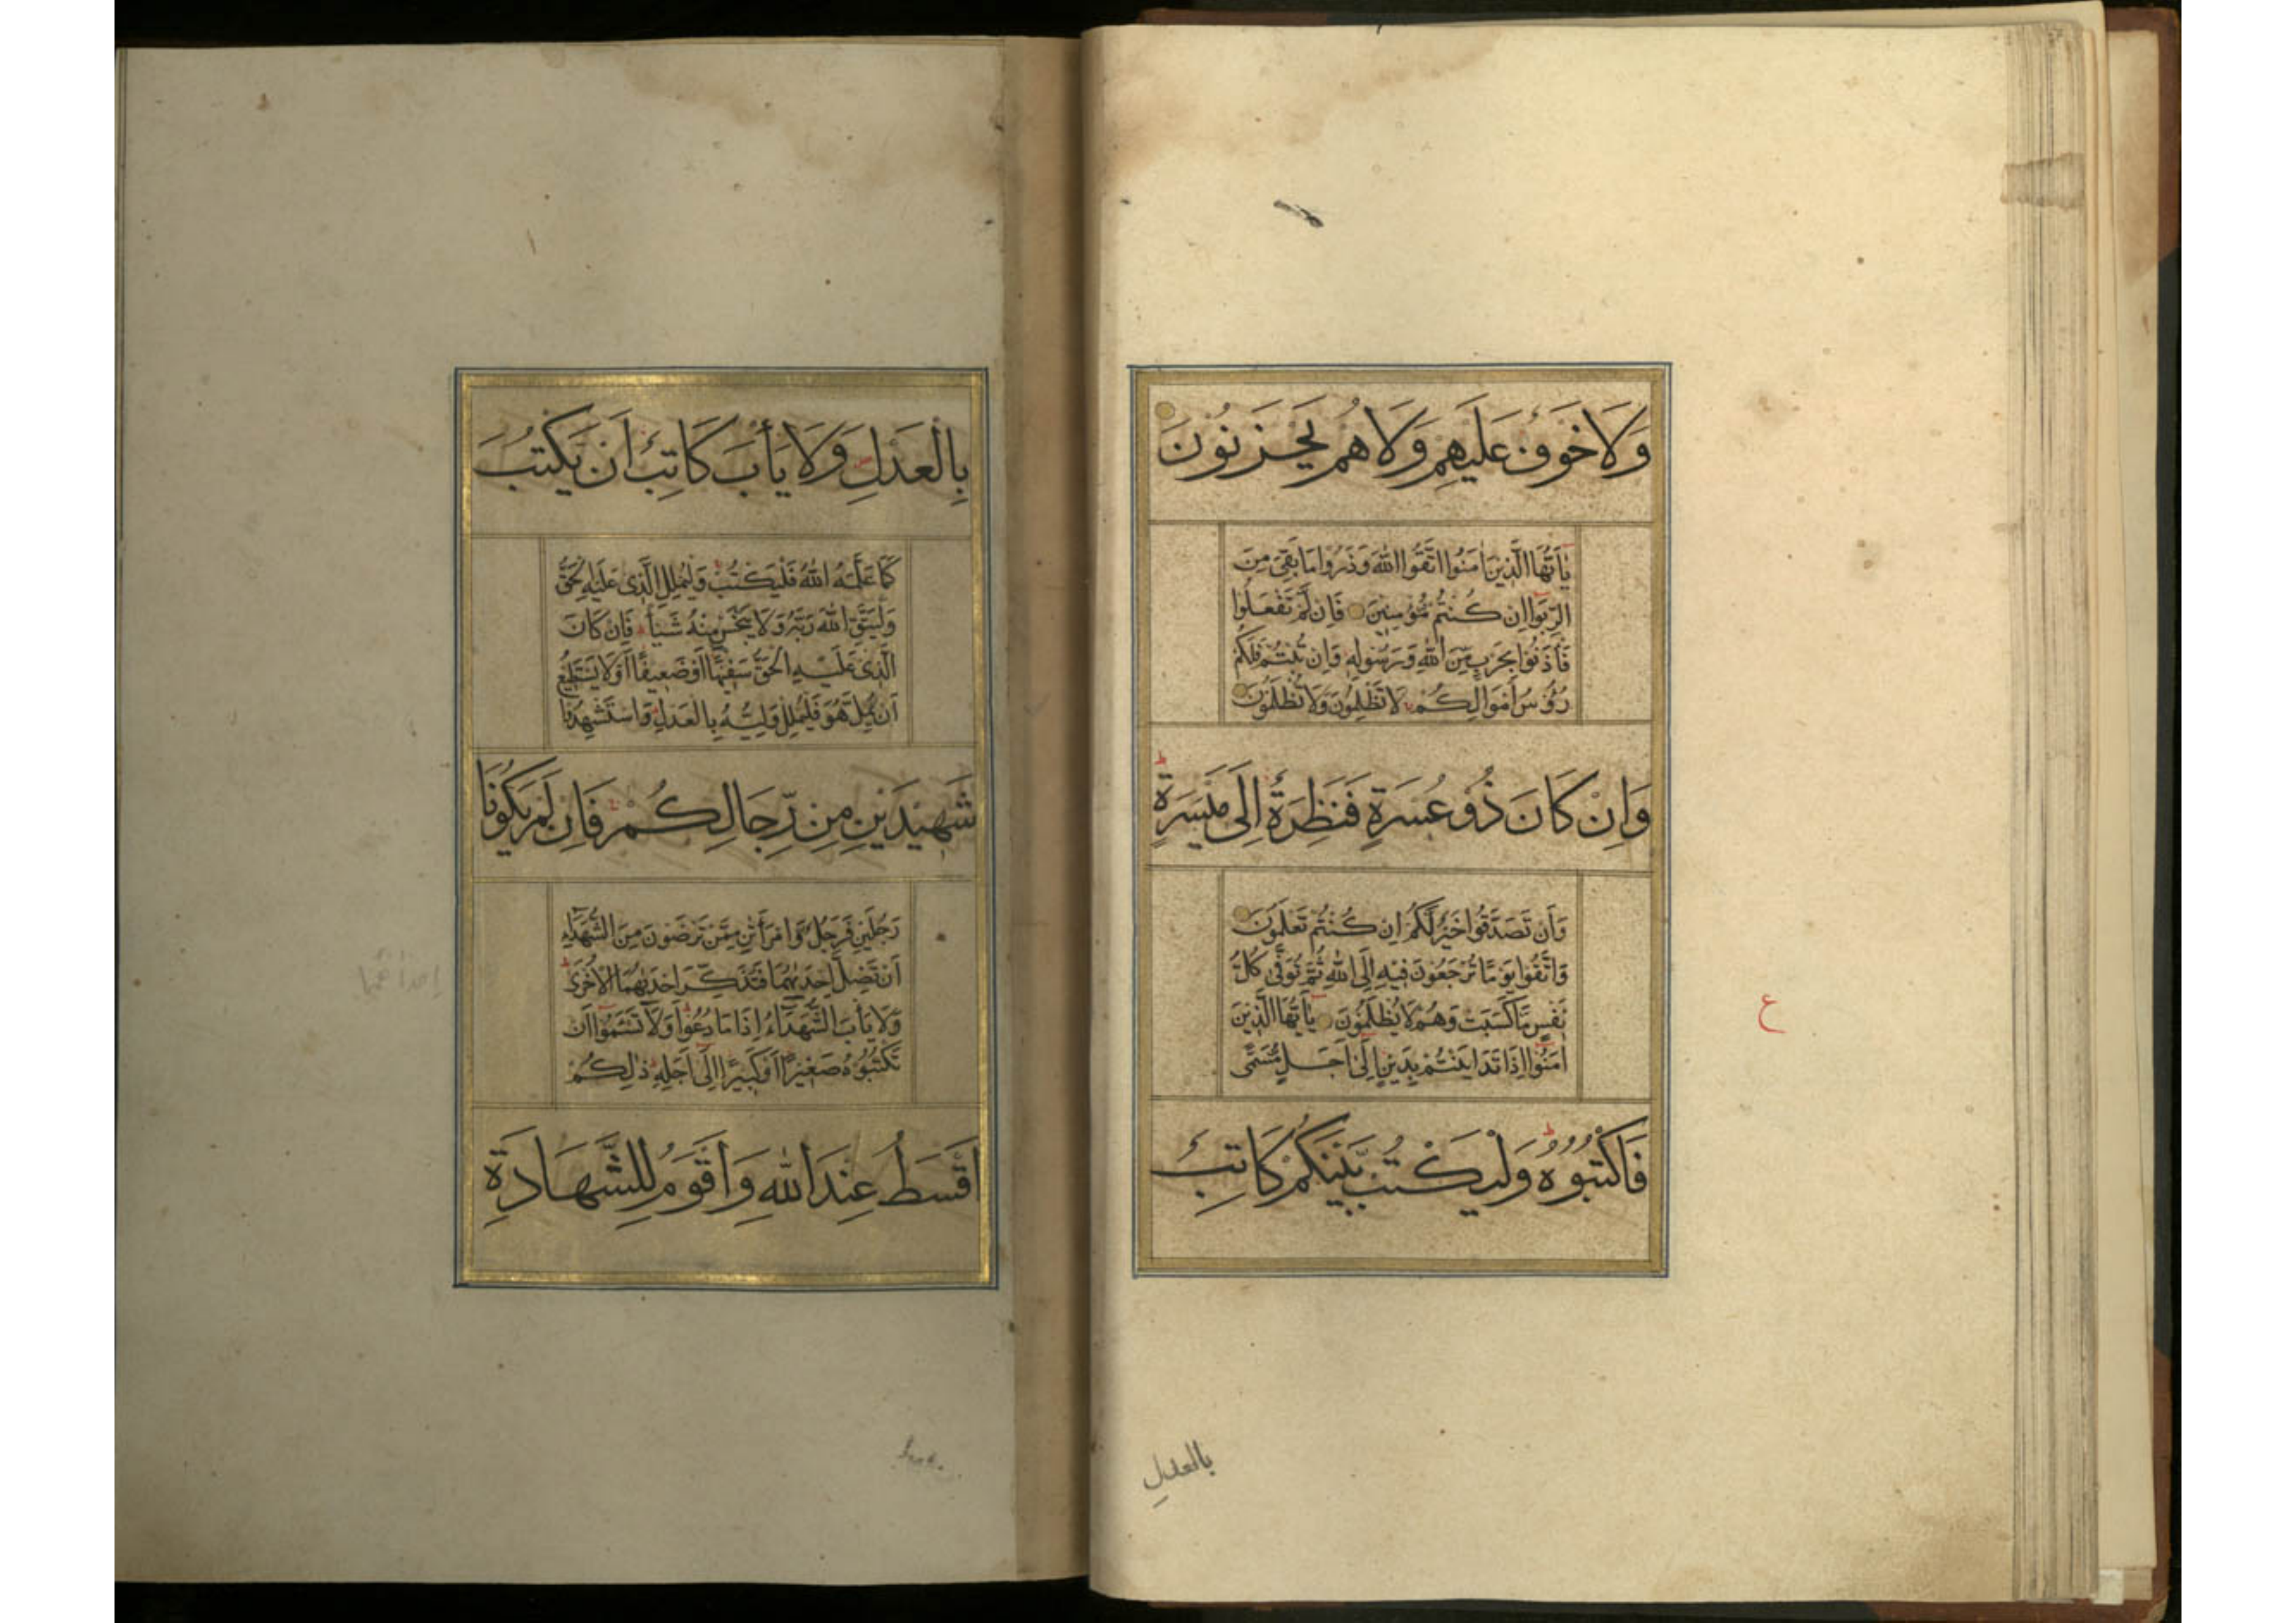 وَلَا خَوْفٌ عَلَيْهِمْ وَلَا هُمْ يَحْزَنُونَ
يَا أَيُّهَا الَّذِينَ اٰمَنُوا اتَّقُوا اللّٰهَ وَذَرُوا مَا بَقِيَ مِنَ
الرِّبٰوا اِنْ كُنْتُمْ مُؤْمِنِينَ فَاِنْ لَمْ تَفْعَلُوا
فَأْذَنُوا بِحَرْبٍ مِنَ اللّٰهِ وَرَسُولِهِ وَاِنْ تُبْتُمْ فَلَكُمْ
رُؤُسُ اَمْوَالِكُمْ لَا تَظْلِمُونَ وَلَا تُظْلَمُونَ
وَاِنْ كَانَ ذُو عُسْرَةٍ فَنَظِرَةٌ اِلَى مَيْسَرَةٍ
وَاَنْ تَصَدَّقُوا خَيْرٌ لَكُمْ اِنْ كُنْتُمْ تَعْلَمُونَ
وَاتَّقُوا يَوْمًا تُرْجَعُونَ فِيهِ اِلَى اللّٰهِ ثُمَّ تُوَفَّى كُلُّ
نَفْسٍ مَا كَسَبَتْ وَهُمْ لَا يُظْلَمُونَ يَا أَيُّهَا الَّذِينَ
اٰمَنُوا اِذَا تَدَايَنْتُمْ بِدَيْنٍ اِلَى اَجَلٍ مُسَمًّى
فَاكْتُبُوهُ وَلْيَكْتُبْ بَيْنَكُمْ كَاتِبٌ
ع
بالعدلِ
بِالْعَدْلِ وَلَا يَأْبَ كَاتِبٌ اَنْ يَكْتُبَ
كَمَا عَلَّمَهُ اللّٰهُ فَلْيَكْتُبْ وَلْيُمْلِلِ الَّذِي عَلَيْهِ الْحَقُّ
وَلْيَتَّقِ اللّٰهَ رَبَّهُ وَلَا يَبْخَسْ مِنْهُ شَيْئًا فَاِنْ كَانَ
الَّذِي عَلَيْهِ الْحَقُّ سَفِيهًا اَوْ ضَعِيفًا اَوْ لَا يَسْتَطِيعُ
اَنْ يُمِلَّ هُوَ فَلْيُمْلِلْ وَلِيُّهُ بِالْعَدْلِ وَاسْتَشْهِدُوا
شَهِيدَيْنِ مِنْ رِجَالِكُمْ فَاِنْ لَمْ يَكُونَا
رَجُلَيْنِ فَرَجُلٌ وَامْرَأَتٰنِ مِمَّنْ تَرْضَوْنَ مِنَ الشُّهَدَاءِ
اَنْ تَضِلَّ اِحْدٰيهُمَا فَتُذَكِّرَ اِحْدٰيهُمَا الْاُخْرَى
وَلَا يَأْبَ الشُّهَدَاءُ اِذَا مَا دُعُوا وَلَا تَسْئَمُوا اَنْ
تَكْتُبُوهُ صَغِيرًا اَوْ كَبِيرًا اِلَى اَجَلِهِ ذٰلِكُمْ
اَقْسَطُ عِنْدَ اللّٰهِ وَاَقْوَمُ لِلشَّهَادَةِ